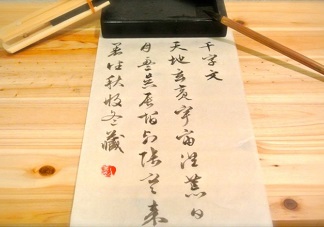 千字文
天地玄黄宇宙洪荒日
月盈昃辰宿列張寒来
暑往秋收冬藏